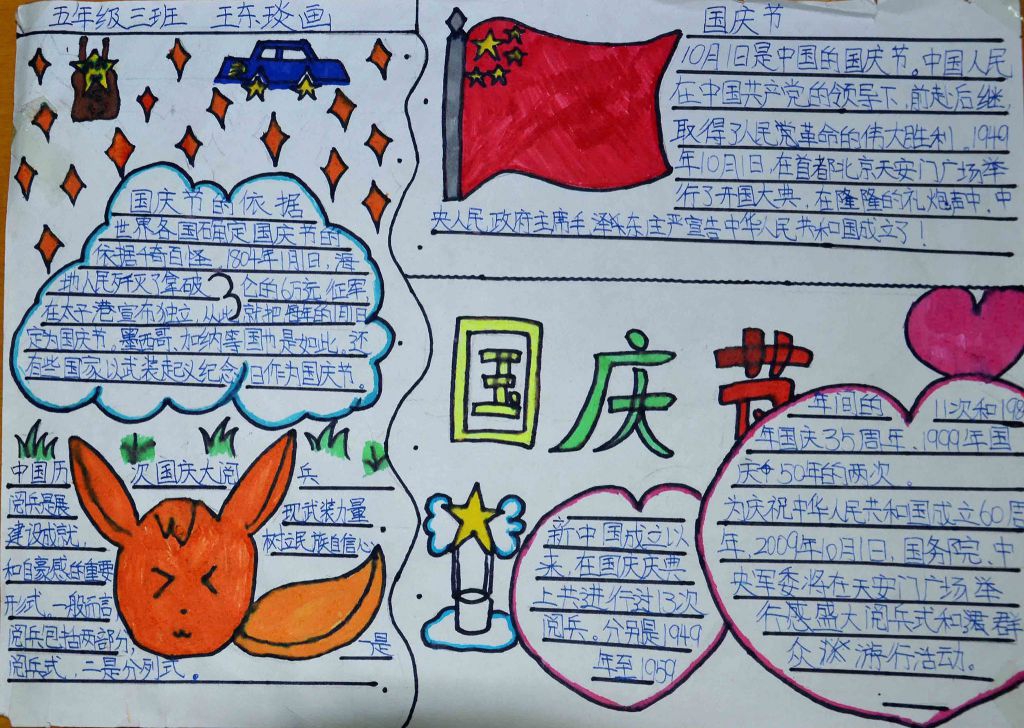 五年级三班 王东琰画
国庆节的依据
世界各国确定国庆节的
依据千奇百怪，1804年1月1日，海
地人民歼灭了拿破仑的6万元征军
在太子港宣布独立，从此就把每年的1月1日
定为国庆节，墨西哥，加纳等国也是如此。还
有些国家以武装起义纪念日作为国庆节。
3
中国历次国庆大阅兵
阅兵是展现武装力量
建设成就，树立民族自信心
和自豪感的重要
形式。一般而言
阅兵包括两部分，一是
阅兵式，二是分列式。
国庆节
10月1日是中国的国庆节。中国人民
在中国共产党的领导下，前赴后继，
取得了人民党革命的伟大胜利。1949
年10月1日，在首都北京天安门广场举
行了开国大典，在隆隆的礼炮声中，中
央人民政府主席毛泽东庄严宣告中华人民共和国成立了！
国庆节
新中国成立以
来，在国庆庆典
上共进行过13次
阅兵。分别是1949
年至1959
年间的 11次和198
年国庆35周年、1999年国
庆50年的两次。
为庆祝中华人民共和国成立60周
年，2009年10月1日，国务院、中
央军委将在天安门广场举
行盛大阅兵式和
众游行活动。